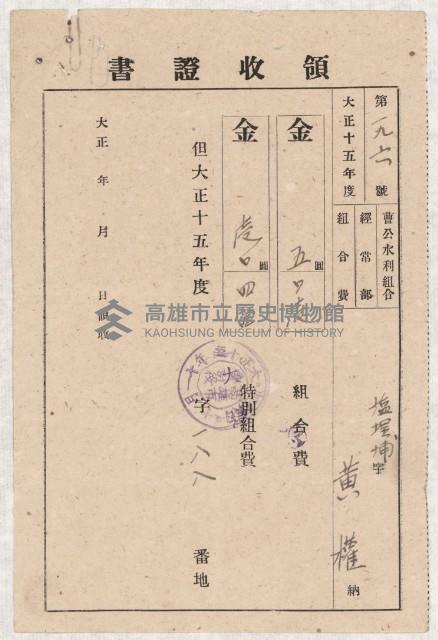 領收證書
第一九六號
大正十五年度
曹公水利組合
經常部
組合費
塩埕埔字
黃權納
金 五 圓
組合費
金 圓
特別組合費
但大正十五年度
大字一八八番地
大正 年 月 日領收
高雄市立歷史博物館
KAOHSIUNG MUSEUM OF HISTORY